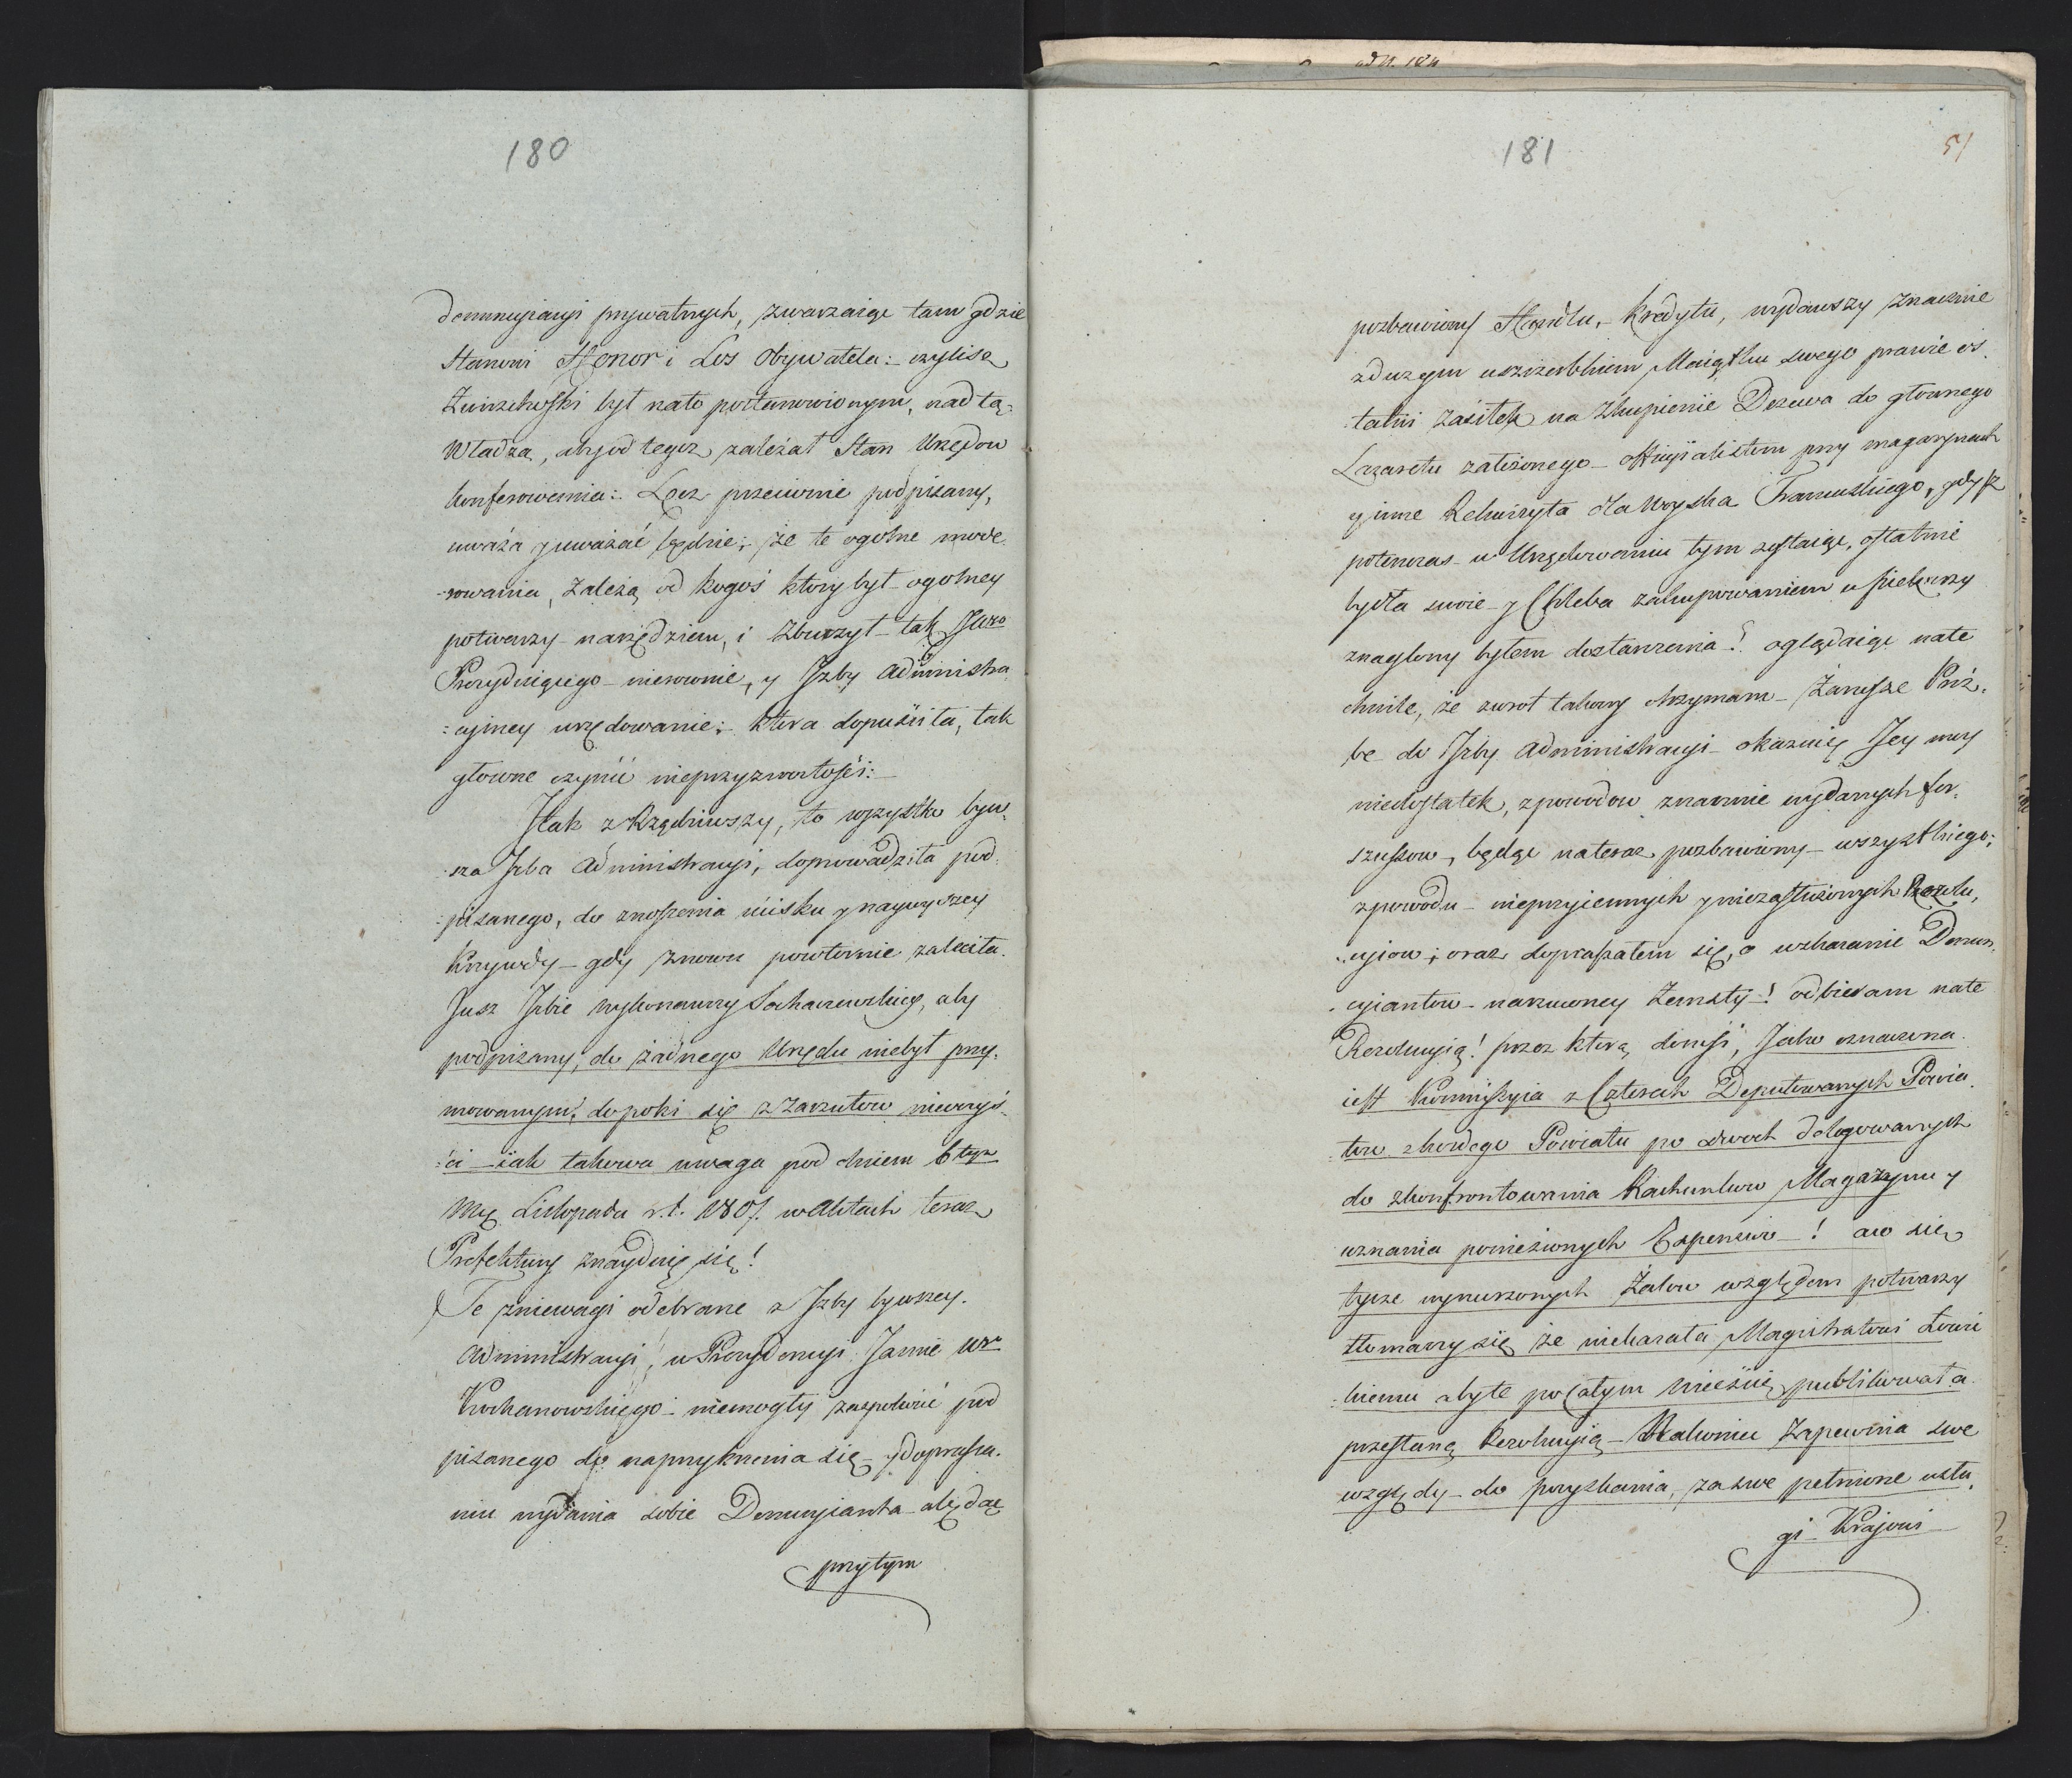 180
denuncyacyi prywatnych, zwarzaiąc tam gdzie
Stanowi Honor i Los Obywatela:- czylisz
był nato postanowionym, nad tą-
Władzą, aby od tegoz zależał Stan Urzędow
konferowania:- Lecz przeciwnie podpisany,
uważa y uważać będzie;- że te ogolne mode-
-rowania, zależą od kogoś ktory był ogolney
potwarzy narzędziem, i Zburzył tak
Prezyduiącego niewinnie, y Izby Administra-
:cyiney urzędowanie;- ktora dopuściła, tak
głowne czynić nieprzyzwoitości:-
Itak z Rządziwszy, to wszystko byw-
-sza Izba Administracyi, doprowadziła pod-
-pisanego, do znoszenia ucisku y naywyższey
Krzywdy - gdy znowu powtornie zaleciła
Jusz Izbie wykonawczey Sochaczewskiey, aby
podpisany, do żadnego Urzędu niebył przy-
mowanym, dopoki się z Zarzutow niewyiś-
:ci - iak takowa uwaga pod dniem 6tym
Msca Listopada r.t. 1807. w Aktach teraz
Prefektury znayduię się!
Te zniewagi odebrane z Izby bywszey
Administracyi, w Prezydencyi Jasnie Wo
Kochanowskiego - niemogły zaspokoić pod
pisanego do naprzyknenia się - y doprasza-
niu wydania sobie Denuncyanta - ale
przytym
181
51
pozbawiony Handlu,- Kredytu, wydawszy znacznie
zduzym uszczerbkiem Maiątku swego prawie os-
-tatni zasiłek na Zkupienie Drzewa do głownego
Lazaretu założonego - Officyalistom przy magazynach
y inne Rekwizyta dla Woyska Francuskiego, gdysz
potenczas w Urzędowaniu tym zostaiąc, ostatnie
bydła swoie y Chleba zakupowaniem u piekarzy
znaglony byłem dostarczenia! oglądaiąc nate
chwile, że zwrot takowy otrzymam - Zanosze Proź-
be do Izby Administracyi - okazuię Jey moy
niedostatek, zpowodow znacznie wydanych for-
szussow, będąc nateraz pozbawiony - wszystkiego;
zpowodu - nieprzyiemnych y niezasłużonych Rezolu,
-cyiow; oraz dopraszałem się, o uskaranie Denun-
-cyiantow - narzuconey Zemsty! odbieram nate
Rezolucyią! przez ktorą, donosi, Jako oznaczona
iest Kommissyia z Czterech Deputowanych Powia
:tow z kożdego Powiatu po dwoch Delegowanych
do zkonfrontowania Rachunkow Magazynu y
uznania poniesionych Expensow -! aco się
tycze wynurzonych Żalow względem potwarzy
tłomaczy się że niekazała Magistratowi Łowi
:ckiemu abyte po Całym Mieście publikował a
przesłaną Rezolucyią - Nakoniec Zapewnia swe
względy - do pozyskania, za swe pełnione usłu-
gi Krajowi